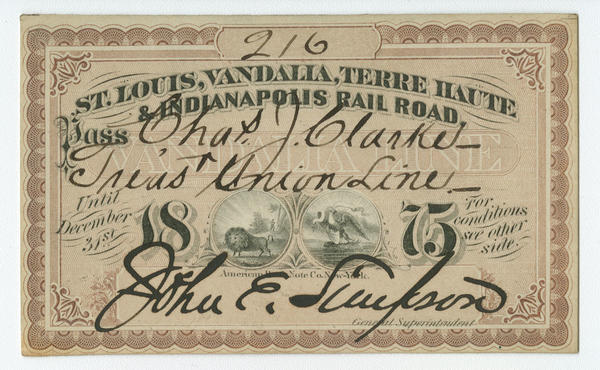 216
ST. LOUIS, VANDALIA, TERRE HAUTE
& INDIANAPOLIS RAIL ROAD,
Pass Chas. J. Clarke
VANDALIA LINE
Treasr Union Line
Until December 31st 1875 For conditions see other side.
American Bank Note Co. New-York.
John E. Simpson
General Superintendent